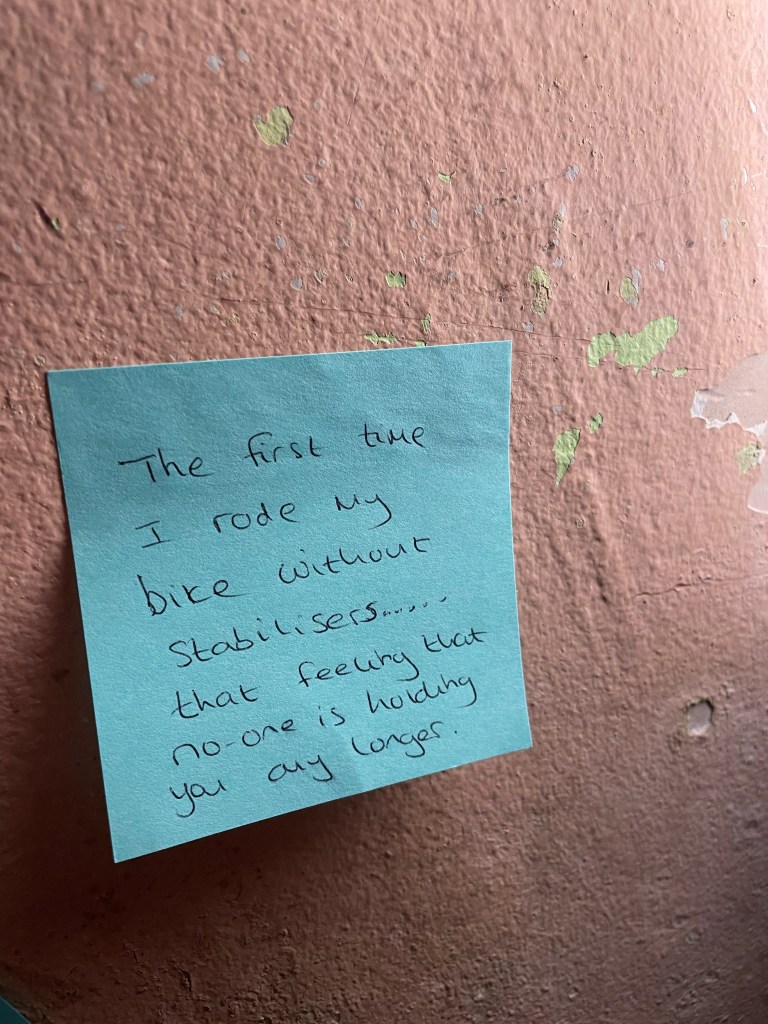 The first time
I rode my
bike without
stabilisers......
that feeling that
no-one is holding
you any longer.